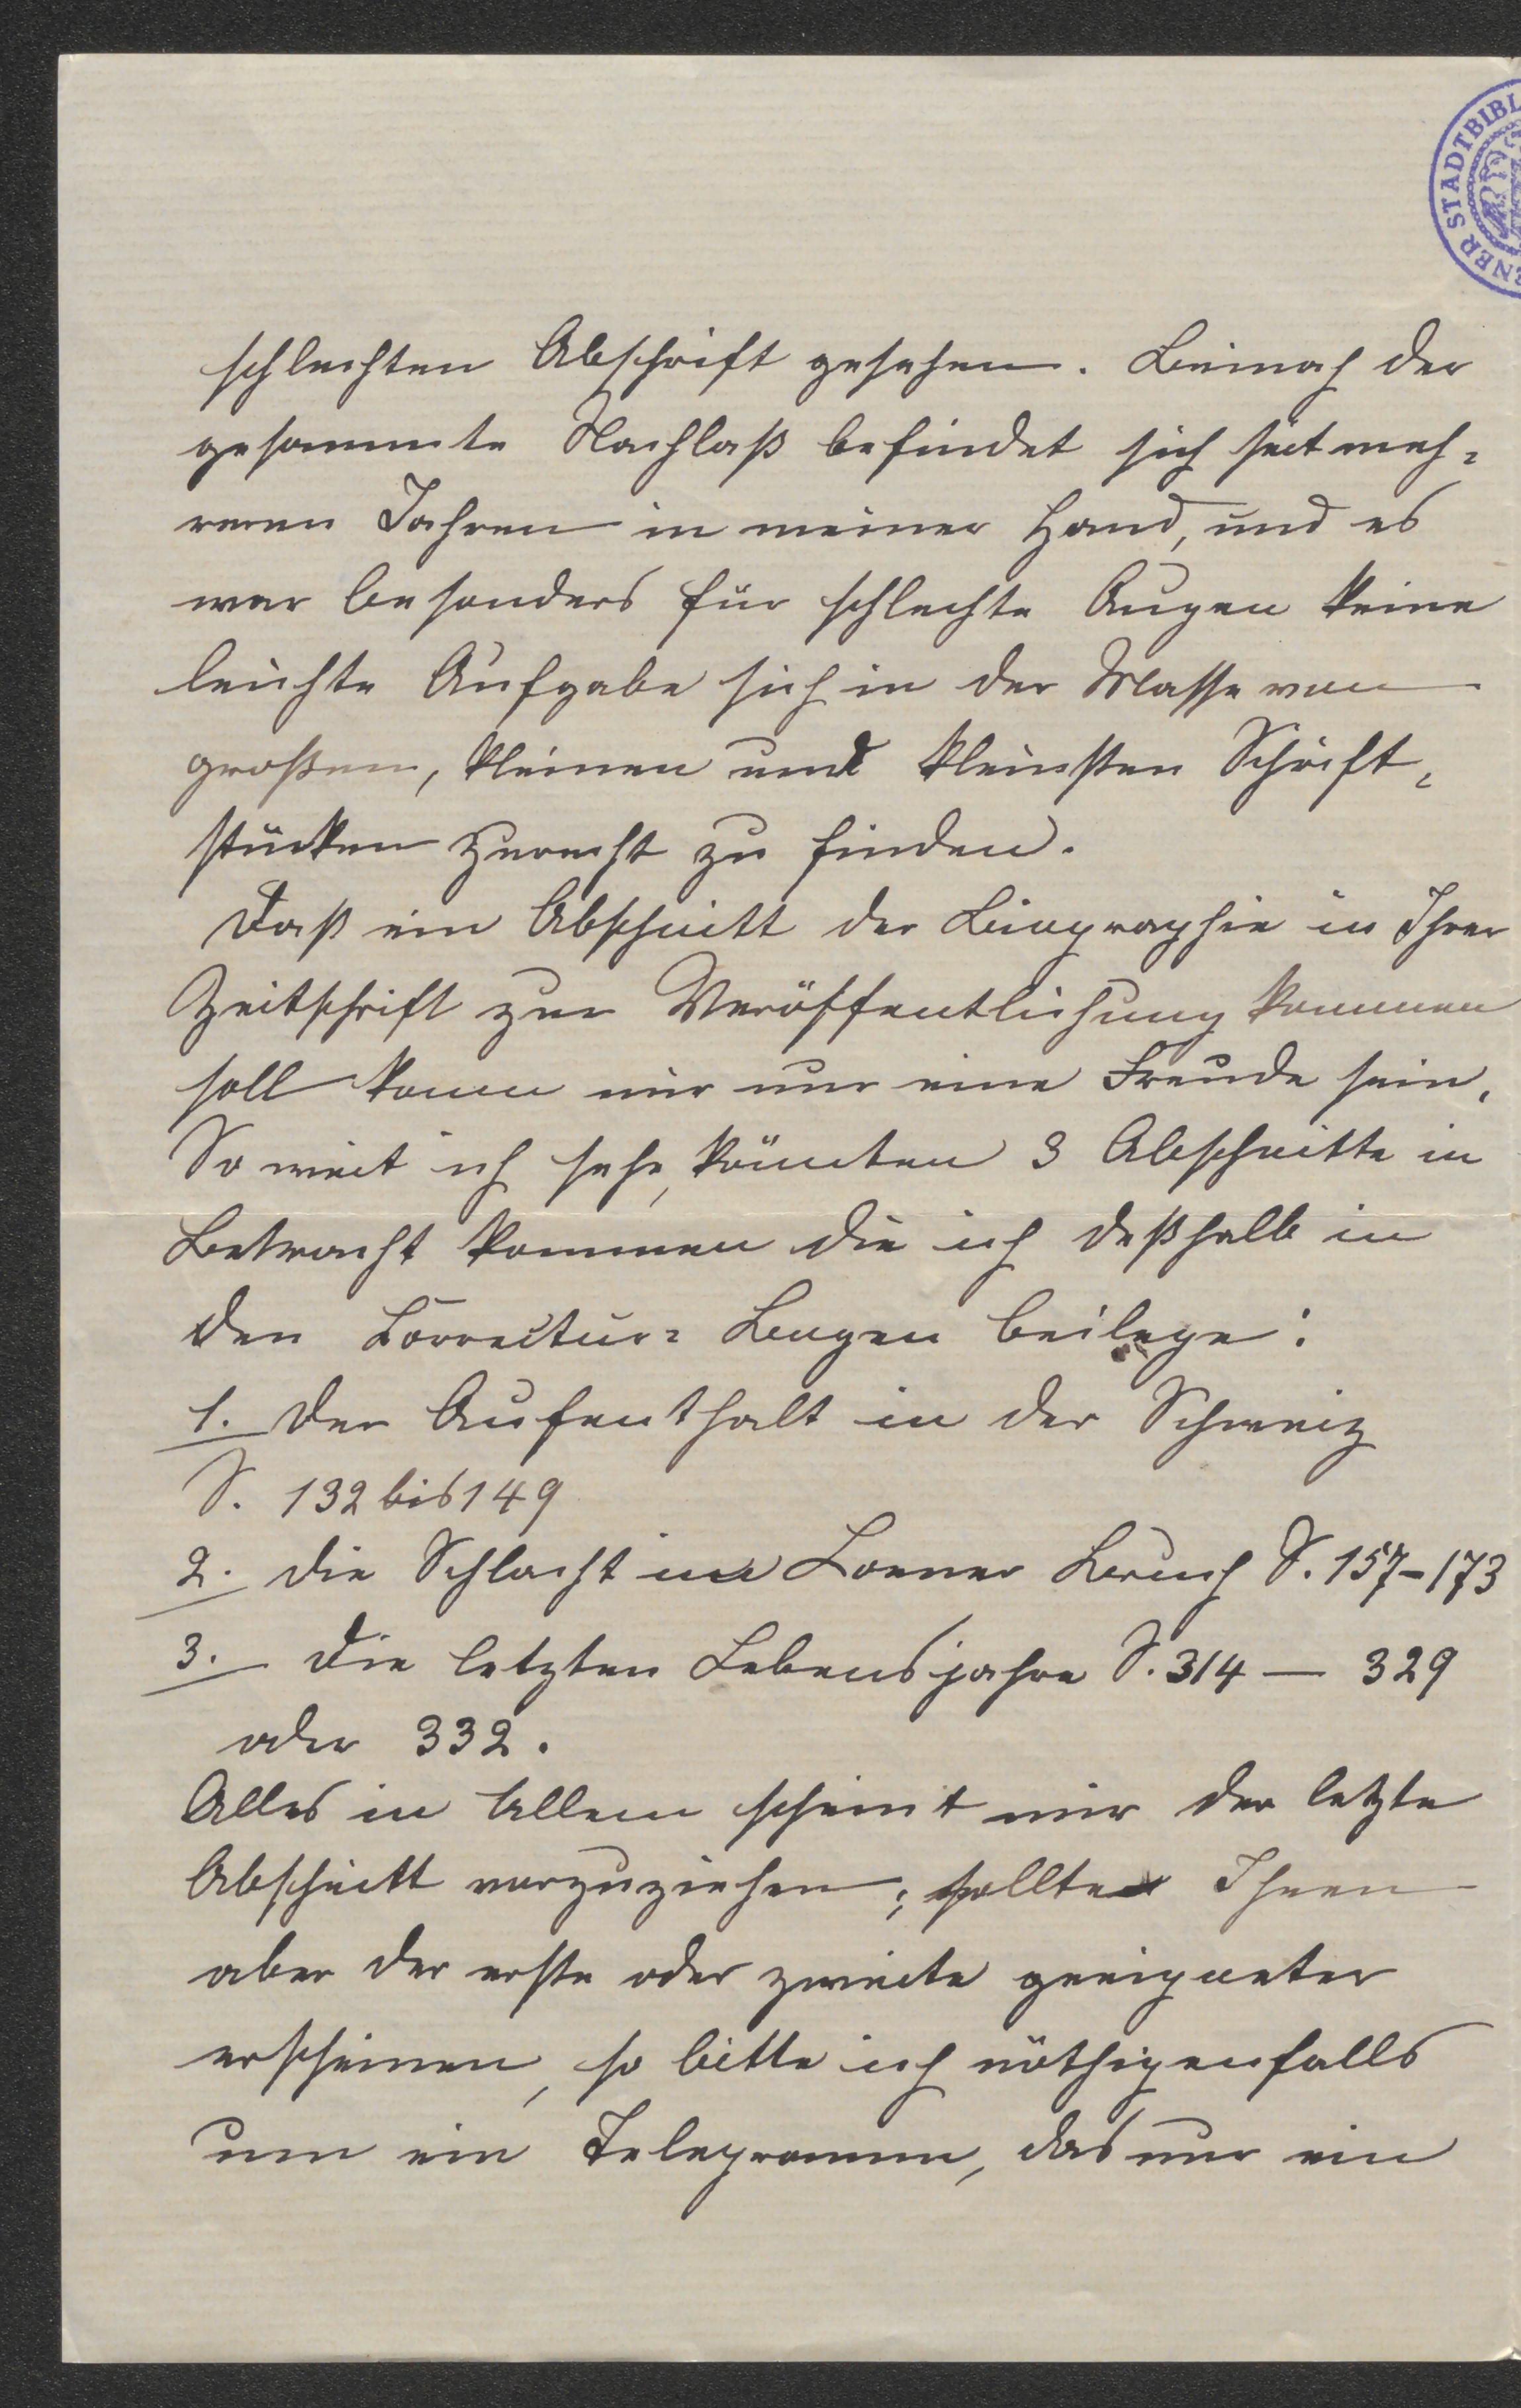 WIENER STADTBIBL
schlechten Abschrift gesehen. Beinah der
gesammte Nachlaß befindet sich seit meh=
reren Jahren in meiner Hand, und es
war besonders für schlechte Augen keine
leichte Aufgabe sich in der Masse von
großen, kleinen und kleinsten Schrift=
stücken zurecht zu finden.
Daß ein Abschnitt der Biographie in Ihrer
Zeitschrift zur Veröffentlichung kommen
soll kann mir nur eine Freude sein.
So weit ich sehe, könnten 3 Abschnitte in
Betracht kommen die ich deßhalb in
den Correctur= Bogen beilege:
1. der Aufenthalt in der Schweiz
S. 132 bis 149
2. die Schlacht im Loener Bruch S. 157-173
3. die letzten Lebensjahre S. 314 — 329
oder 332.
Alles in Allem scheint mir der letzte
Abschnitt vorzuziehen; sollte Ihnen
aber der erste oder zweite geeigneter
erscheinen, so bitte ich nöthigenfalls
um ein Telegramm, das nur ein